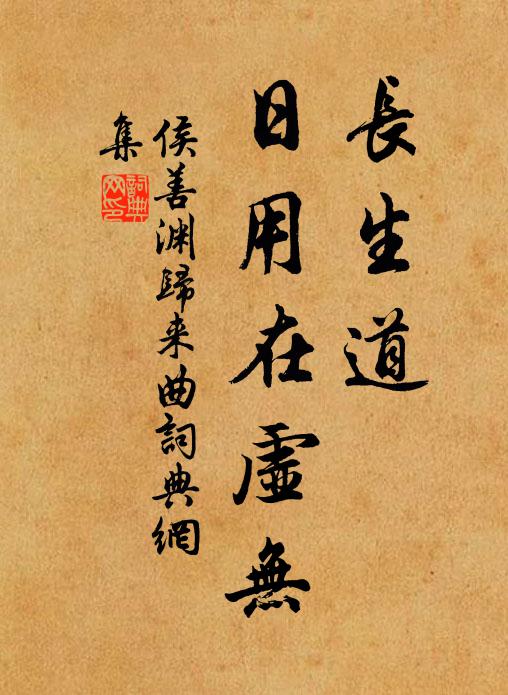 長生道
日用在虛無
侯善淵歸来曲詞典網
集
詞典
网印